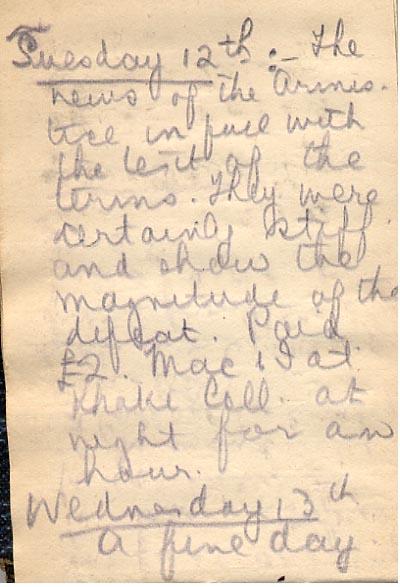 Tuesday 12th :- The
news of the Armis-
tice in full with
the text of the
terms. They were
certainly stiff
and show the
magnitude of the
defeat. Paid
£2. Mac & I at
Khaki Coll. at
night for an
hour.
Wednesday 13th
A fine day